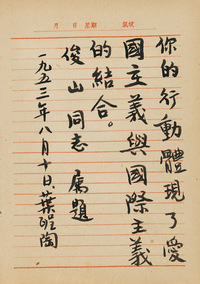 月 日 星期 氣候
你的行動體現了愛
國主義與國際主義
的結合。
俊山同志 屬題
一九五三年八月十日 葉聖陶